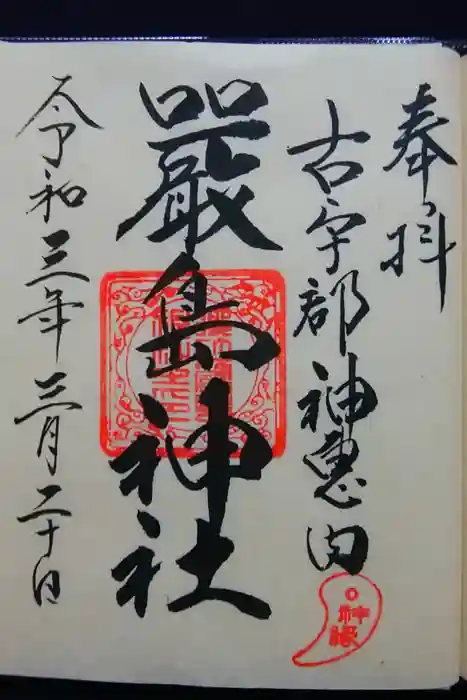 奉拝
古宇部神恵内
厳島神社
令和三年三月二十日
神縁